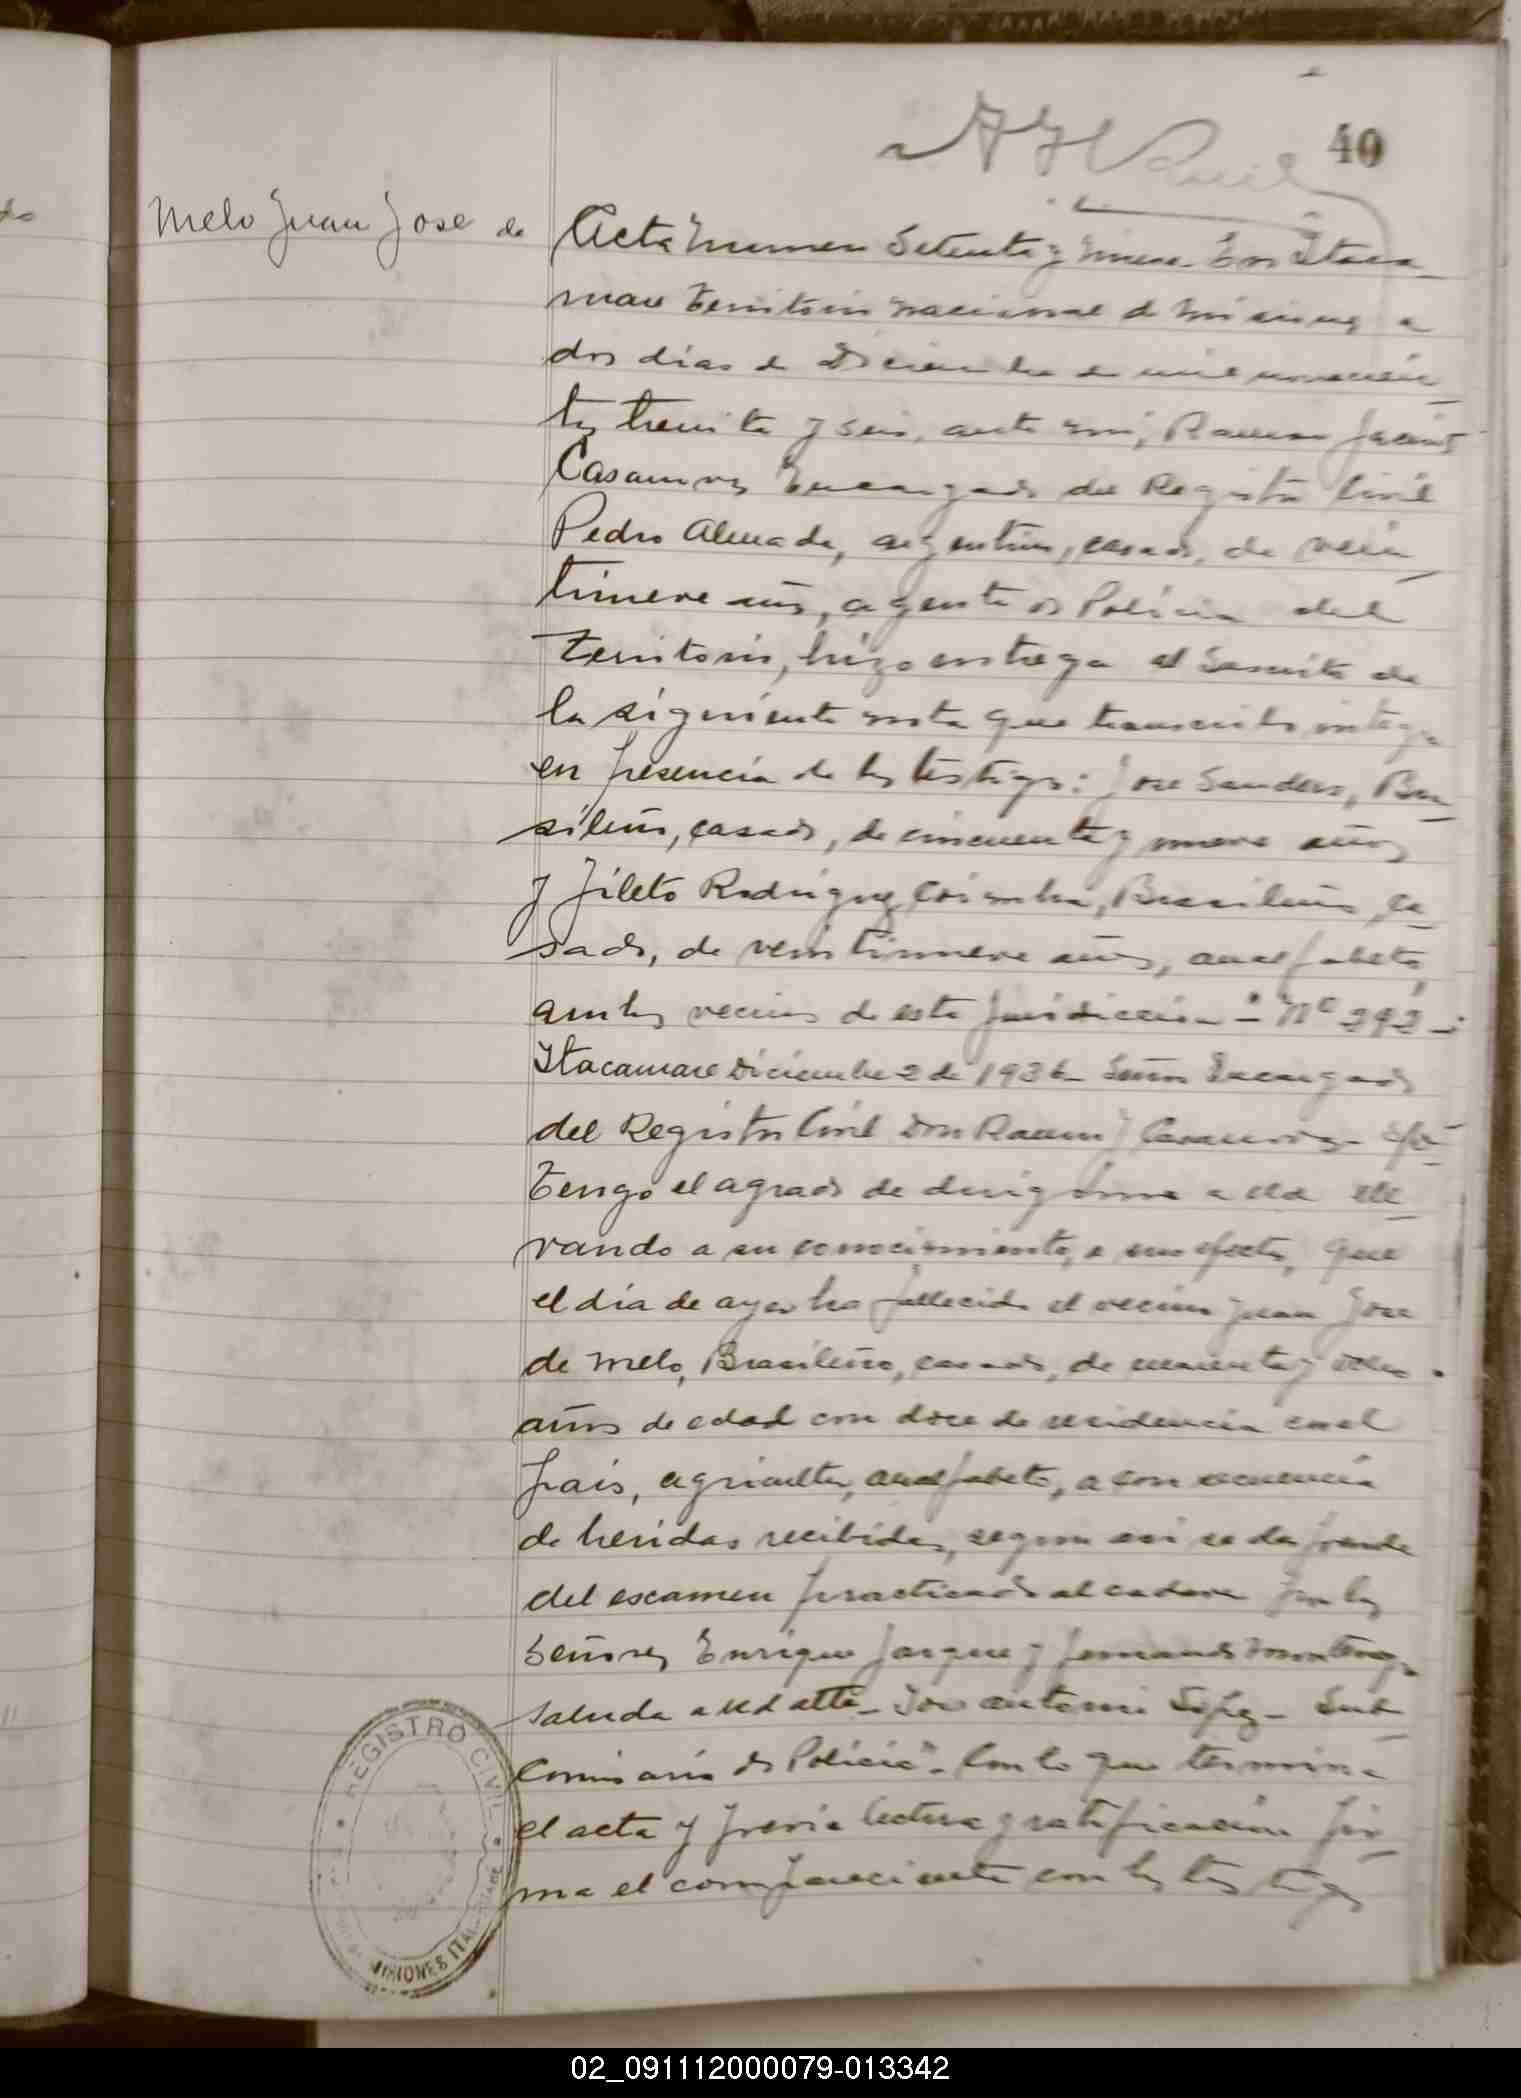 40
Melo Juan Jose de
Acta Numero Setenta y nueve. En Itaca-
ruare territorio nacional de Misiones a
dos dias de Diciembre de mil novecien-
tos treinta y seis, ante mi, Ramon
Casanoves Encargado del Registro Civil
Pedro Almada, argentino, casado, de vein-
tinueve años, agente de Policia del
Territorio, hizo entrega al suscrito de
la siguiente nota que transcribo integra
en presencia de los testigos: Jose Sanders, Bra-
sileño, casado, de cincuenta y nueve años
y Fileto Rodriguez Coimbra, Brasileño, ca-
sado, de veintinueve años, analfabeto,
ambos vecinos de esta jurisdiccion - "Nº 292 -
Itacaruare Diciembre 2 de 1936 - Señor Encargado
del Registro Civil Don Ramon J Casanoves -
Tengo el agrado de dirigirme a Ud ele-
vando a su conocimiento, a sus efectos, que
el dia de ayer ha fallecido el vecino Juan Jose
de Melo, Brasileño, casado, de y
años de edad con doce de residencia en el
pais, agricultor, analfabeto, a consecuencia
de heridas recibidas, segun asi se desprende
del escamen practicado al cadaver por los
Señores Enrique Jarque y Fernando
Saluda a Ud atte - Jose Antonio Lopez - Sub
Comisario de Policia". Con lo que termina
el acta y previa lectura y ratificacion fir-
ma el compareciente con los testigos
REGISTRO CIVIL
MISIONES ITACARUARE
02_091112000079-013342